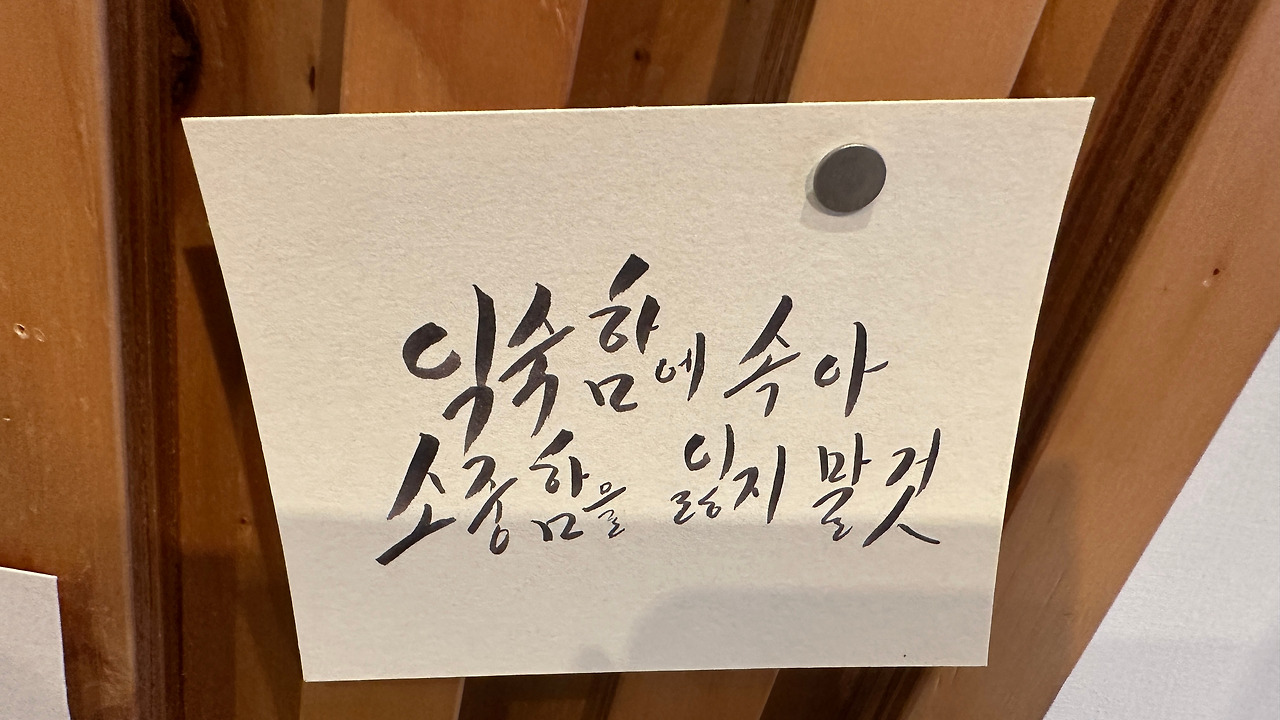 익숙함에 속아
소중함을 잃지 말 것